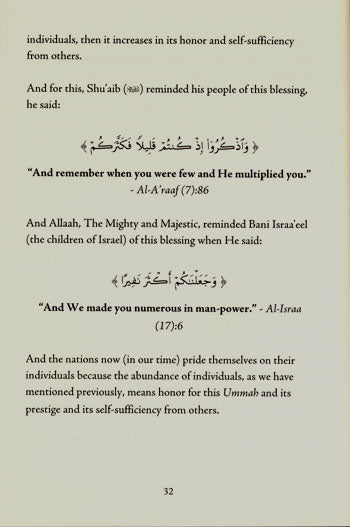 individuals, then it increases in its honor and self-sufficiency
from others.
And for this, Shu'aib (ﷺ) reminded his people of this blessing,
he said:
﴿ وَٱذْكُرُوٓا۟ إِذْ كُنتُمْ قَلِيلًا فَكَثَّرَكُمْ ﴾
“And remember when you were few and He multiplied you.”
- Al-A'raaf (7):86
And Allaah, The Mighty and Majestic, reminded Bani Israa'eel
(the children of Israel) of this blessing when He said:
﴿ وَجَعَلْنَٰكُمْ أَكْثَرَ نَفِيرًا ﴾
“And We made you numerous in man-power.” - Al-Israa
(17):6
And the nations now (in our time) pride themselves on their
individuals because the abundance of individuals, as we have
mentioned previously, means honor for this Ummah and its
prestige and its self-sufficiency from others.
32